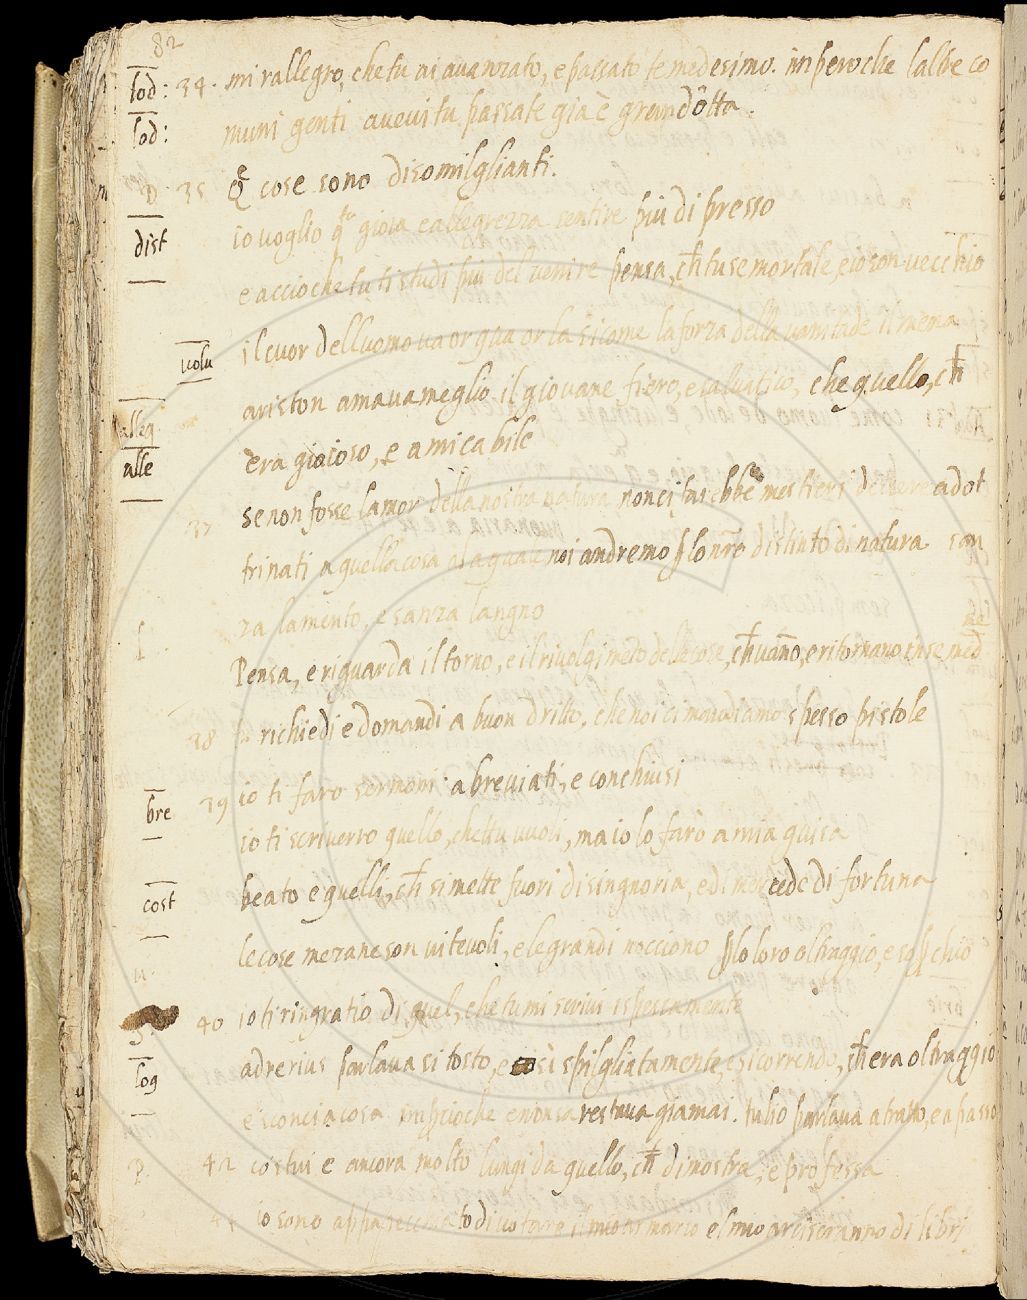 82
lod: 34. mi rallegro, che tu ai avanzato, e passato te medesimo. imperoche l altre co
lod: muni genti avevi tu passate gia è grand'otta.
35 Q^e cose sono disomilglianti.
dist io voglio q^sta gioia e allegrezza sentire piu di presso
e accioche tu ti studi piu del venire pensa, ch tu se mortale, e io son vecchio
volu il cuor dell uomo va or qua or la sicome la forza della vanitade il mena
alleg ariston amava meglio il giovane fiero, e salvatico, che quello, ch
alle èra gioioso, e amicabile
37 se non fosse l amor della nostra natura non ci farebbe mestieri d essere adot
trinati a quella cosa ala quale noi andremo p lo nro distinto di natura san
za lamento, e sanza langno
Pensa, e riguarda il torno, e il rivolgimeto delle cose, ch vanno, e ritornano in se med
38 tu richiedi e domandi a buon dritto, che noi ci mandiamo spesso pistole
bre 39 io ti faro sermoni abreviati, e conchiusi
io ti scriverro quello, che tu vuoli, ma io lo farò a mia guisa
cost beato e quelli, ch si mette fuori di singnoria, e di mercede di fortuna
le cose mezane son utevoli, e le grandi nocciono p lo loro oltraggio, e sopchio
40 io ti ringratio di quel, che tu mi scrivi ispessamente
log adrerius parlava si tosto, e così spilgliatamente, e si correndo, ch era oltraggio
e sconcia cosa impcioche e non sa restava giamai. tulio parlava a tratto, e a passo
P. 42 costui e ancora molto lungi da quello, ch dimostra, e professa
io sono apparecchiato di votare il mio armario e l mio arciscranno di libri